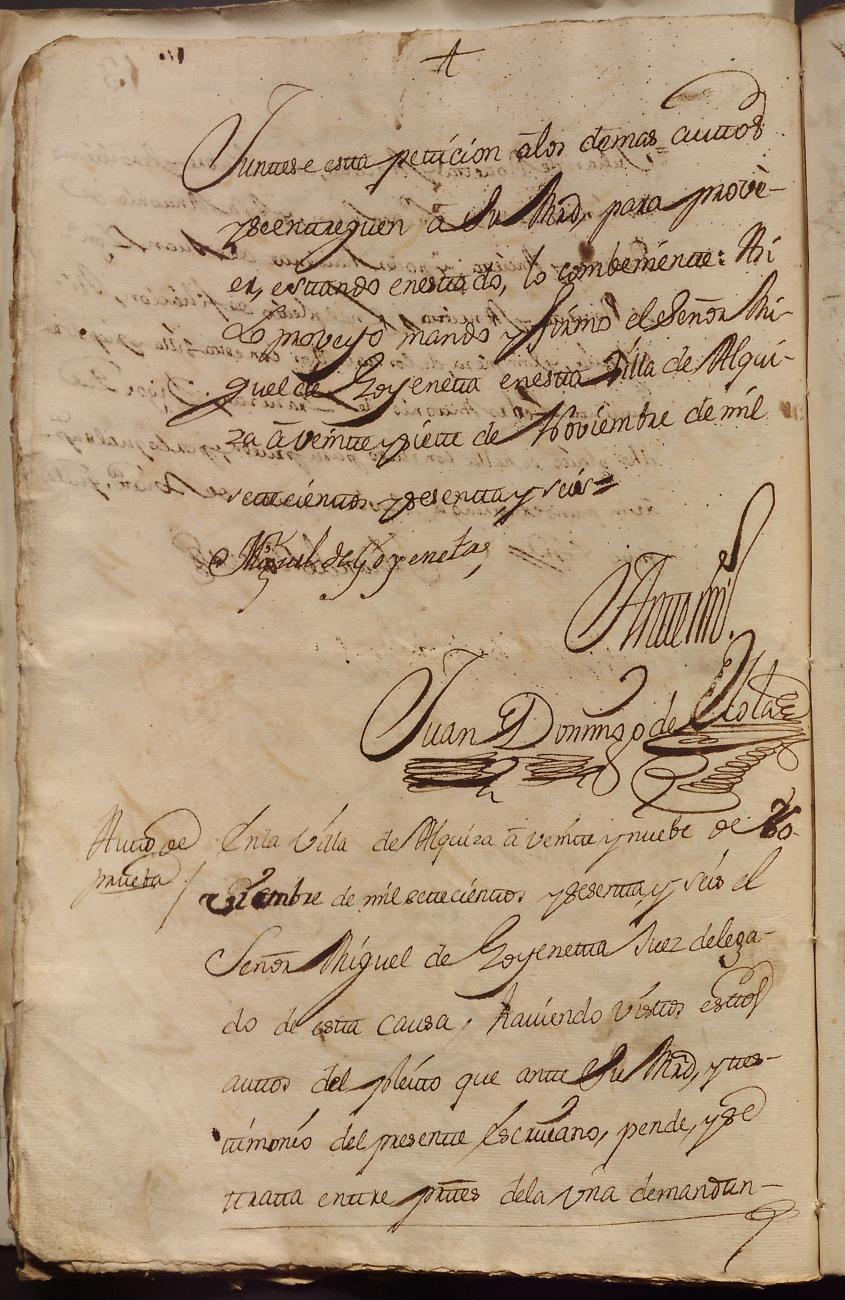 Juntese esta peticion â los demas autos
y se entreguen â Su Mrd, para prove-
er, estando en estado, lo combeniente: Asi
Lo proveyò mando y firmò el Señor Mi-
guel de Goyenetta en esta Villa de Alqui-
za â veinte y siete de Noviembre de mil
setecientos y sesenta y seis =
Miguel de Goyeneta
Antemi.
Juan Domingo de
Auto de
prueba /
En la Villa de Alquiza â veinte y nuebe de No-
viembre de mil setecientos y sesenta y seis el
Señor Miguel de Goyenetta Juez delega-
do de esta causa, haviendo vistos estos
autos del pleito que ante Su Mrd, y tes-
timonio del presente Escrivano, pende, y se
tratta entre prtes de la una demandan-